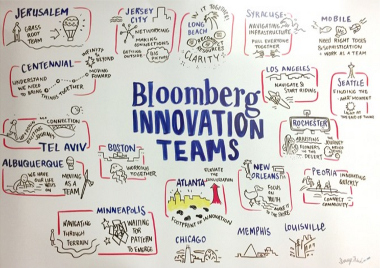 JERUSALEM
GRASS
ROOT
TEAM
JERSEY
CITY
NETWORKING
MAKING
CONNECTIONS
OUTSIDE
BIG PICTURE
LONG
BEACH
PUT IT TOGETHER
RESOURCES
CLARITY
SYRACUSE
NAVIGATING
INFRASTRUCTURE
PULL EVERYONE
TOGETHER
MOBILE
NEED RIGHT TOOLS
& SOPHISTICATION
WORK AS A TEAM
CENTENNIAL
UNDERSTAND
WE NEED
TO BRING
THINGS TOGETHER
INFINITY &
BEYOND
MOVING
FORWARD
LOS ANGELES
NAVIGATE &
START RIDING
SEATTLE
FINDING THE
MOMENT
Bloomberg
INNOVATION
TEAMS
CONNECTION
TEL AVIV
ROCHESTER
IN THE
DESERT
BOSTON
WORKING
TOGETHER
ALBUQUERQUE
WE HAVE
OUR
MOVING
AS A
TEAM
ATLANTA
ELEVATE
THE
CONVERSATION
FOOTPRINT OF INNOVATION
NEW
ORLEANS
FOCUS
ON
YOUTH
PEORIA
INNOVATING
QUICKLY
CONNECT
COMMUNITY
MINNEAPOLIS
NAVIGATING
THROUGH
TERRAIN
WAITING
FOR
PATTERN
TO EMERGE
CHICAGO
MEMPHIS
LOUISVILLE